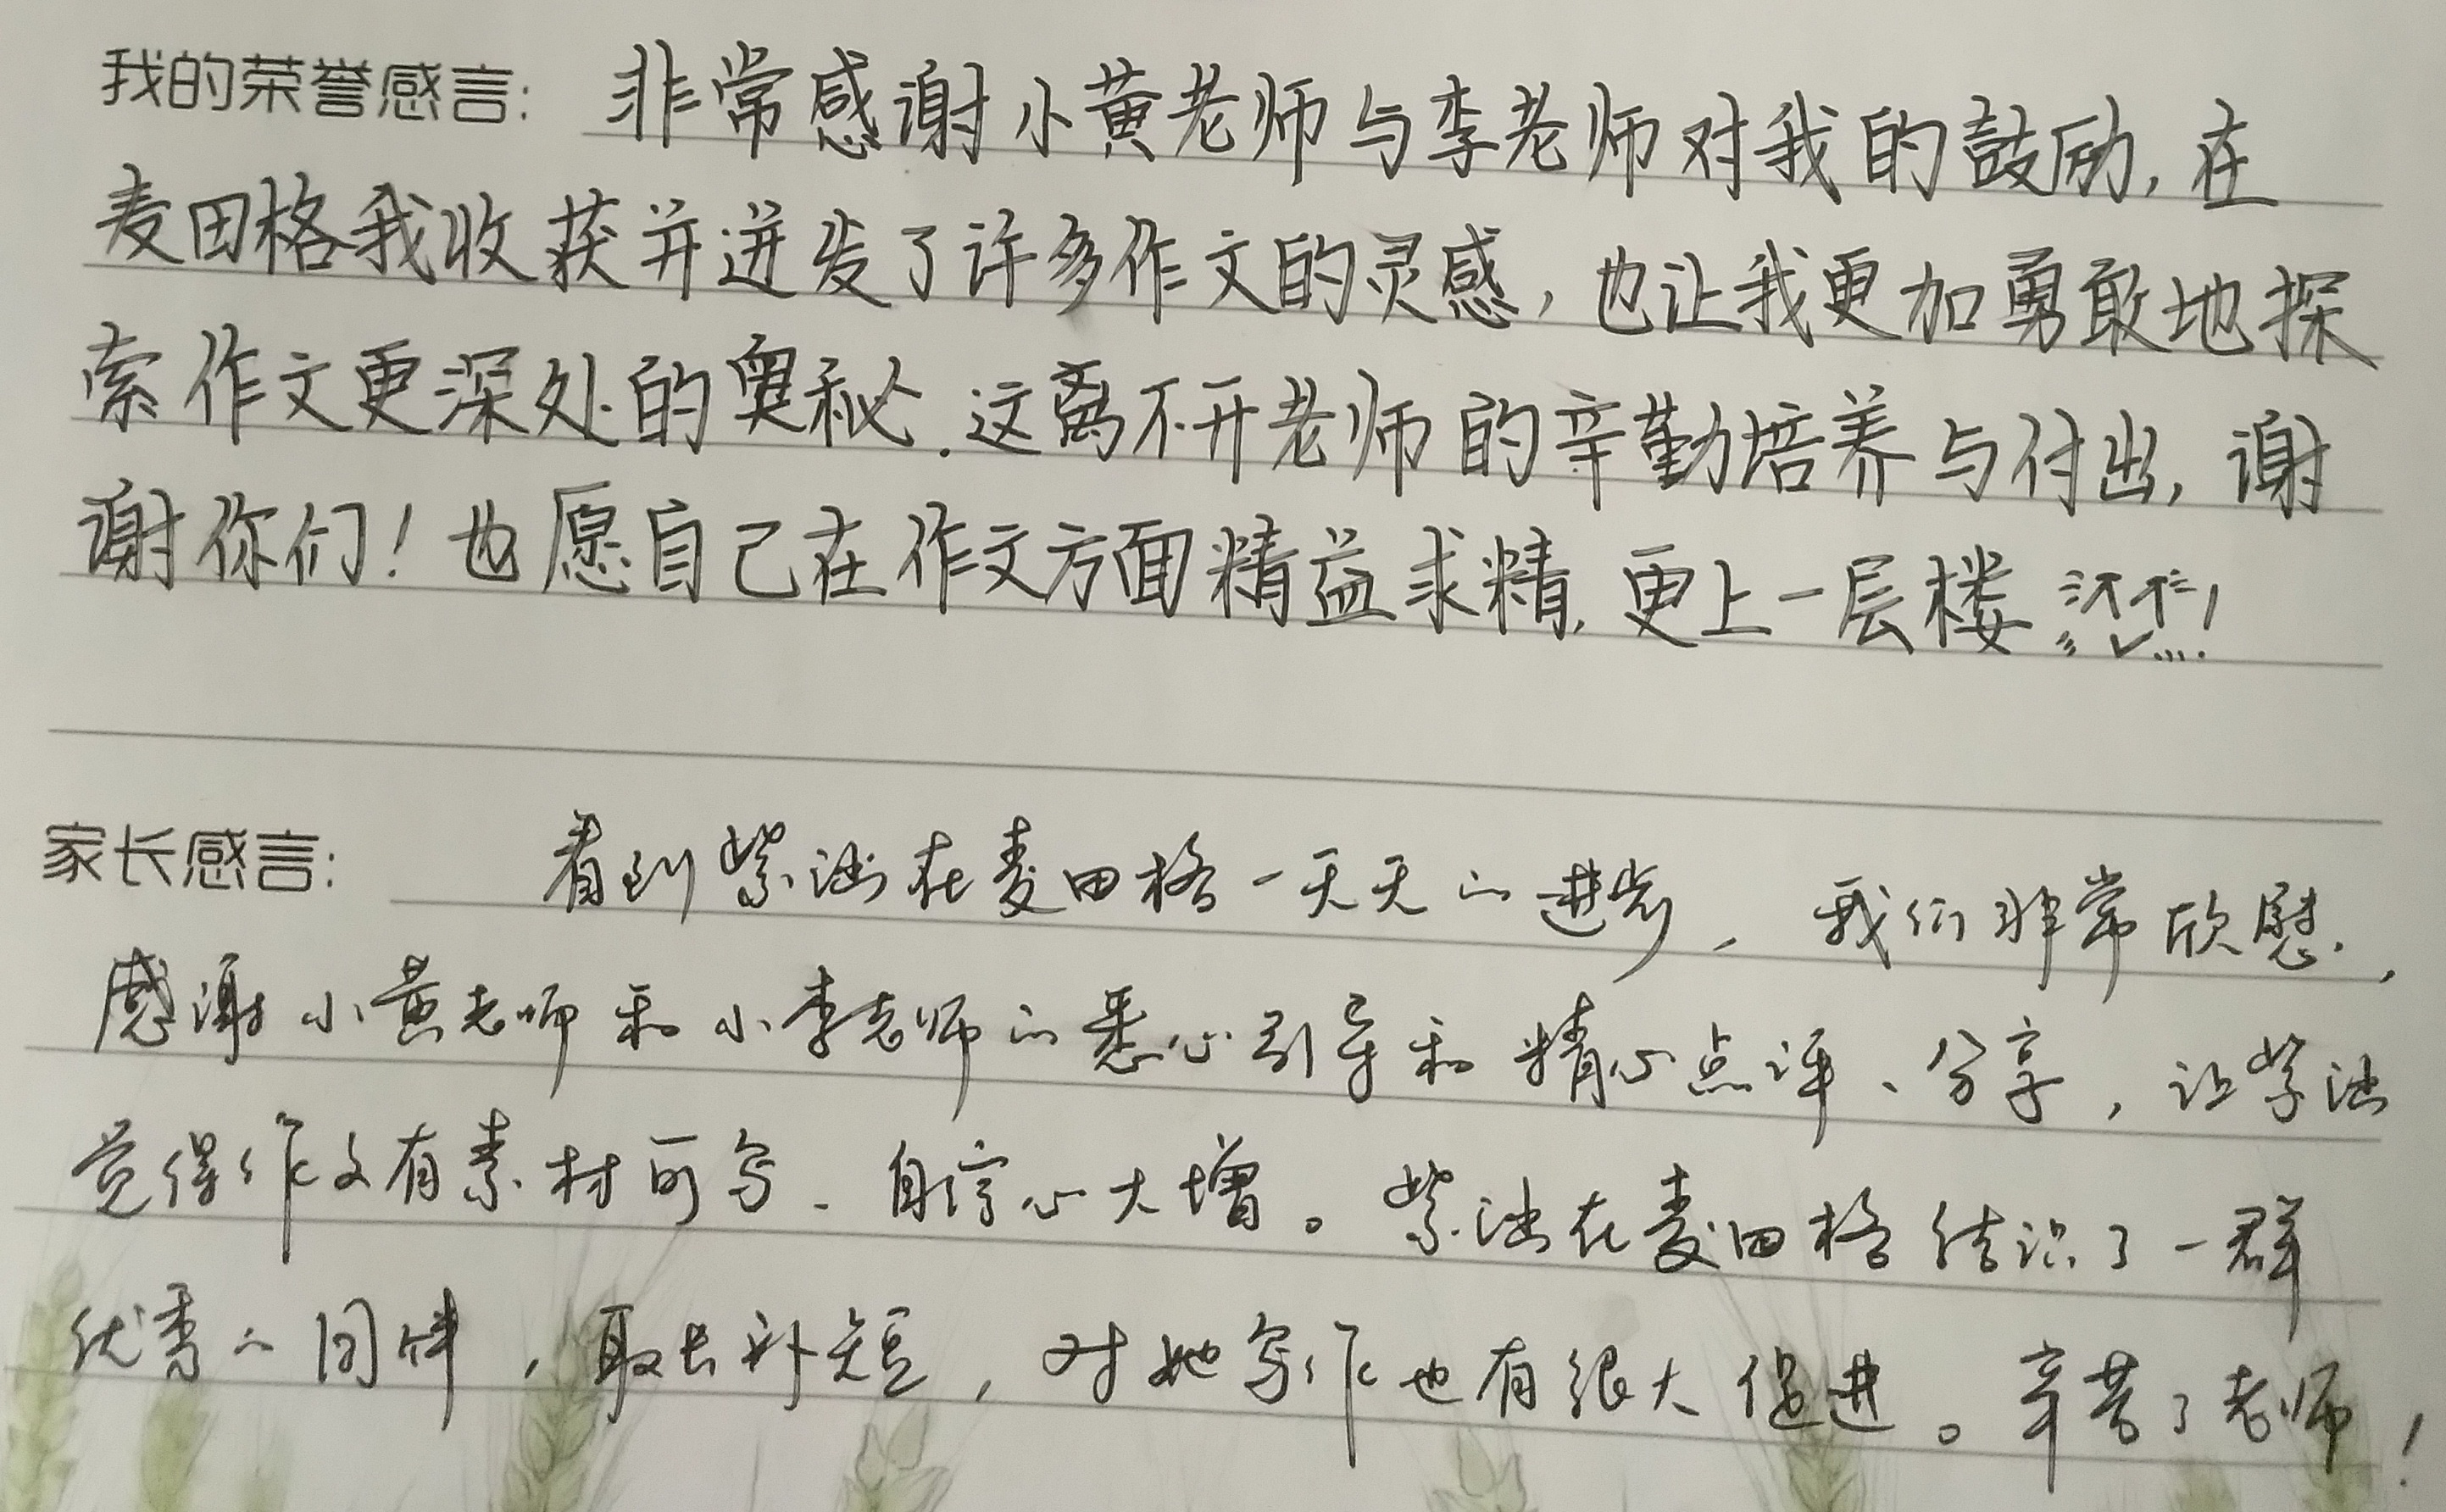 我的荣誉感言：非常感谢小黄老师与李老师对我的鼓励，在
麦田格我收获并迸发了许多作文的灵感，也让我更加勇敢地探
索作文更深处的奥秘.这离不开老师的辛勤培养与付出，谢
谢你们！也愿自己在作文方面精益求精，更上一层楼！
家长感言：看到紫涵在麦田格一天天的进步，我们非常欣慰，
感谢小黄老师和小李老师的悉心引导和精心点评、分享，让紫涵
觉得作文有素材可写、自信心大增。紫涵在麦田格结识了一群
优秀的同伴，取长补短，对她写作也有很大促进。辛苦了老师！